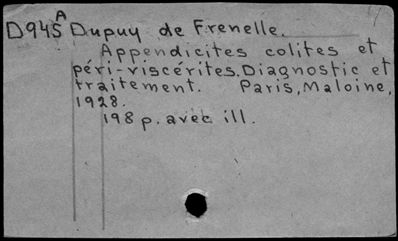 A
D945 Dupuy de Frenelle.
Appendicites colites et
péri-viscérites. Diagnostic et
traitement. Paris, Maloine,
1928.
198 p. avec ill.